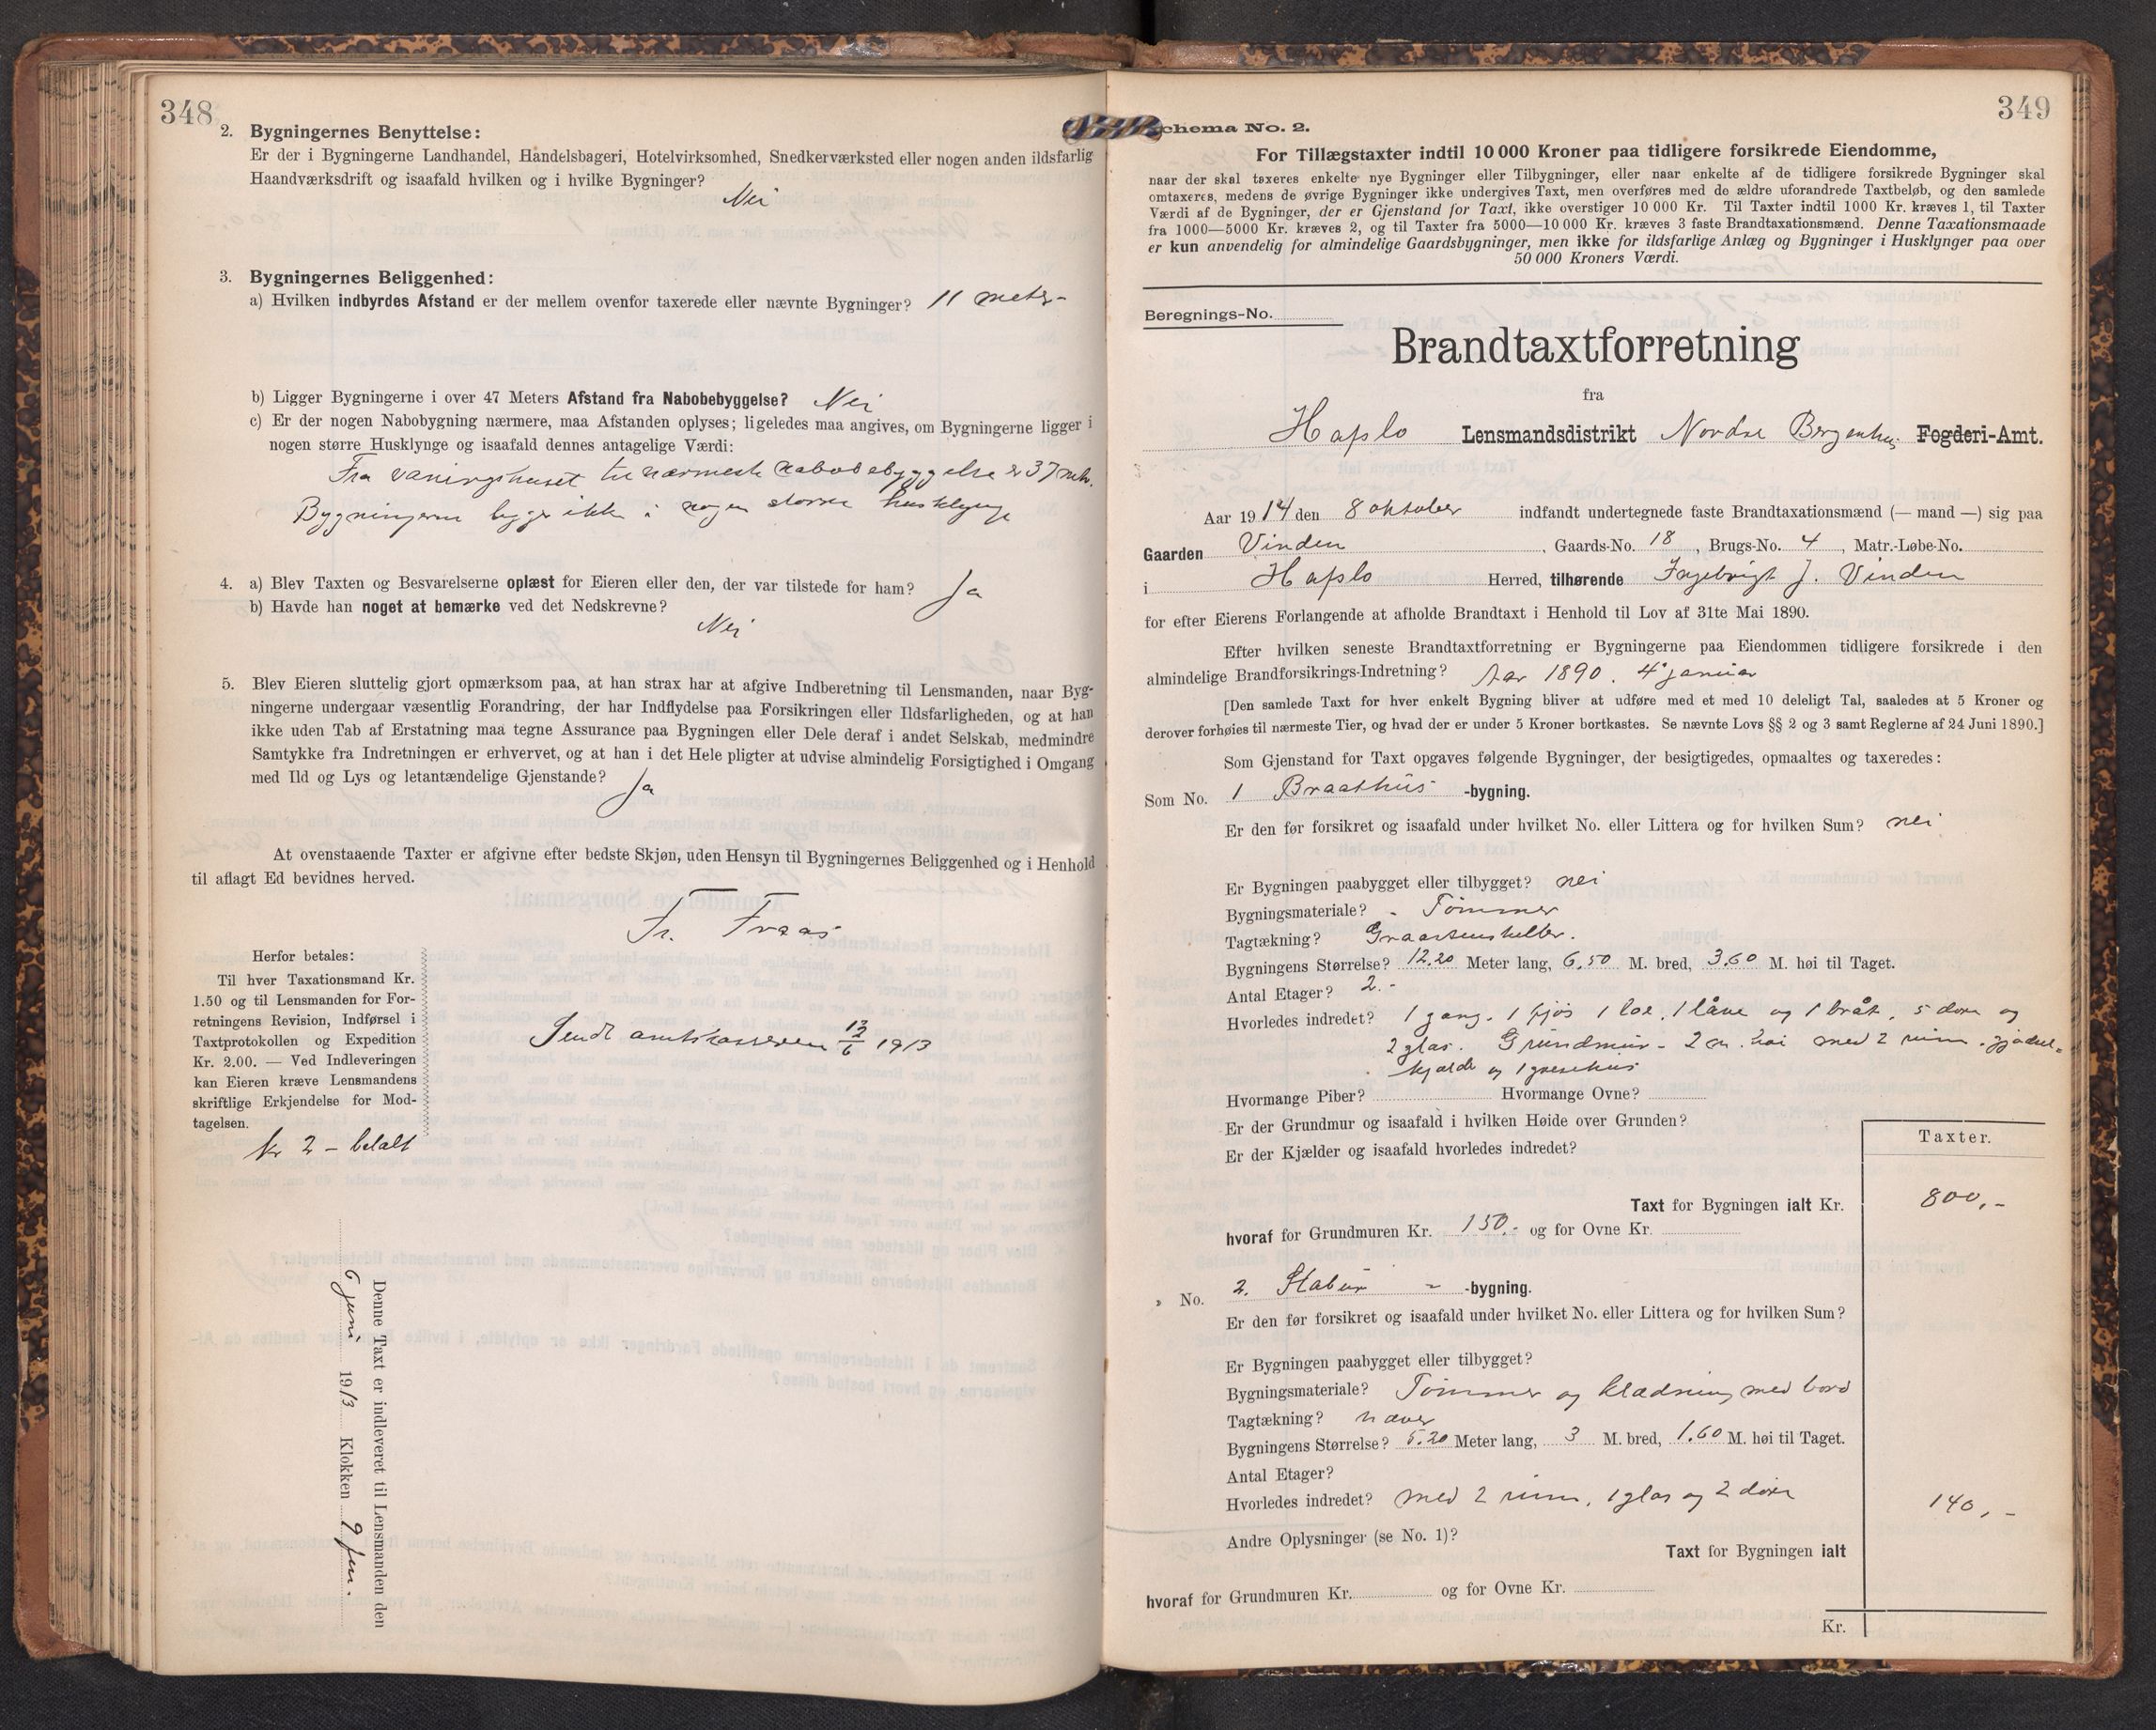 348
2. Bygningernes Benyttelse:
Er der i Bygningerne Landhandel, Handelsbageri, Hotelvirksomhed, Snedkerværksted eller nogen anden ildsfarlig
Haandværksdrift og isaafald hvilken og i hvilke Bygninger?
Nei
3. Bygningernes Beliggenhed:
a) Hvilken indbyrdes Afstand er der mellem ovenfor taxerede eller nævnte Bygninger? 11 meter-
b) Ligger Bygningerne i over 47 Meters Afstand fra Nabobebyggelse? Nei
c) Er der nogen Nabobygning nærmere, maa Afstanden oplyses; ligeledes maa angives, om Bygningerne ligger i
nogen større Husklynge og isaafald dennes antagelige Værdi:
Fra vaningshuset til nærmeste nabobebyggelse er 37 mtr.
Bygningerne ligger ikke i nogen større husklynge
4. a) Blev Taxten og Besvarelserne oplæst for Eieren eller den, der var tilstede for ham? Ja
b) Havde han noget at bemærke ved det Nedskrevne?
Nei
5. Blev Eieren sluttelig gjort opmærksom paa, at han strax har at afgive Indberetning til Lensmanden, naar Byg-
ningerne undergaar væsentlig Forandring, der har Indflydelse paa Forsikringen eller Ildsfarligheden, og at han
ikke uden Tab af Erstatning maa tegne Assurance paa Bygningen eller Dele deraf i andet Selskab, medmindre
Samtykke fra Indretningen er erhvervet, og at han i det Hele pligter at udvise almindelig Forsigtighed i Omgang
med Ild og Lys og letantændelige Gjenstande? Ja
At ovenstaaende Taxter er afgivne efter bedste Skjøn, uden Hensyn til Bygningernes Beliggenhed og i Henhold
til aflagt Ed bevidnes herved.
Fr. Fraas
Herfor betales:
Til hver Taxationsmand Kr.
1.50 og til Lensmanden for For-
retningens Revision, Indførsel i
Taxtprotokollen og Expedition
Kr. 2.00. — Ved Indleveringen
kan Eieren kræve Lensmandens
skriftlige Erkjendelse for Mod-
tagelsen.
kr 2 - betalt
Sendt amtskassereren 12/6 1913
Denne Taxt er indleveret til Lensmanden den
6 juni 1913 Klokken 9 fm.
349
Schema No. 2.
For Tillægstaxter indtil 10 000 Kroner paa tidligere forsikrede Eiendomme,
naar der skal taxeres enkelte nye Bygninger eller Tilbygninger, eller naar enkelte af de tidligere forsikrede Bygninger skal
omtaxeres, medens de øvrige Bygninger ikke undergives Taxt, men overføres med de ældre uforandrede Taxtbeløb, og den samlede
Værdi af de Bygninger, der er Gjenstand for Taxt, ikke overstiger 10 000 Kr. Til Taxter indtil 1000 Kr. kræves 1, til Taxter
fra 1000—5000 Kr. kræves 2, og til Taxter fra 5000—10 000 Kr. kræves 3 faste Brandtaxationsmænd. Denne Taxationsmaade
er kun anvendelig for almindelige Gaardsbygninger, men ikke for ildsfarlige Anlæg og Bygninger i Husklynger paa over
50 000 Kroners Værdi.
Beregnings-No.
Brandtaxtforretning
fra
Hafslo Lensmandsdistrikt Nordre Bergenhus Fogderi-Amt.
Aar 1914 den 8 oktober indfandt undertegnede faste Brandtaxationsmænd (— mand —) sig paa
Gaarden Vinden, Gaards-No. 18, Brugs-No. 4, Matr.-Løbe-No.
i Hafslo Herred, tilhørende Ingebrigt J. Vinden
for efter Eierens Forlangende at afholde Brandtaxt i Henhold til Lov af 31te Mai 1890.
Efter hvilken seneste Brandtaxtforretning er Bygningerne paa Eiendommen tidligere forsikrede i den
almindelige Brandforsikrings-Indretning? Aar 1890. 4 januar
[Den samlede Taxt for hver enkelt Bygning bliver at udføre med et med 10 deleligt Tal, saaledes at 5 Kroner og
derover forhøies til nærmeste Tier, og hvad der er under 5 Kroner bortkastes. Se nævnte Lovs §§ 2 og 3 samt Reglerne af 24 Juni 1890.]
Som Gjenstand for Taxt opgaves følgende Bygninger, der besigtigedes, opmaaltes og taxeredes:
Som No. 1 Braathus -bygning.
Er den før forsikret og isaafald under hvilket No. eller Littera og for hvilken Sum? nei
Er Bygningen paabygget eller tilbygget? nei
Bygningsmateriale? Tømmer
Tagtækning? Graasteensheller.
Bygningens Størrelse? 12.20 Meter lang, 6.50 M. bred, 3.60 M. høi til Taget.
Antal Etager? 2.-
Hvorledes indredet? 1 gang. 1 fjøs 1 loe, 1 låve og 1 bråt, 5 døre og
2 glas. Grundmur - 2 m. høi med 2 rum. gjødsel-
kjelder og 1 grisehus
Hvormange Piber? Hvormange Ovne?
Er der Grundmur og isaafald i hvilken Høide over Grunden?
Er der Kjælder og isaafald hvorledes indredet?
Taxter.
Taxt for Bygningen ialt Kr. 800,-
hvoraf for Grundmuren Kr. 150.- og for Ovne Kr.
" No. 2. Stabur - -bygning.
Er den før forsikret og isaafald under hvilket No. eller Littera og for hvilken Sum?
Er Bygningen paabygget eller tilbygget?
Bygningsmateriale? Tømmer og klædning med bord
Tagtækning? næver
Bygningens Størrelse? 5.20 Meter lang, 3 M. bred, 1.60 M. høi til Taget.
Antal Etager?
Hvorledes indredet? med 2 rum, 1 glas og 2 døre
140,-
Andre Oplysninger (se No. 1)?
Taxt for Bygningen ialt
hvoraf for Grundmuren Kr. og for Ovne Kr.
Kr.